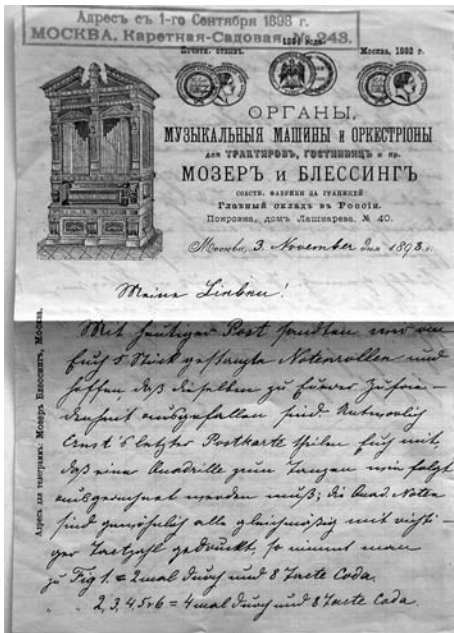 Адресъ съ 1-го Сентября 1893 г.
МОСКВА, Каретная-Садовая, № 243.
Почетн. отзывъ.
Москва, 1882 г.
ОРГАНЫ,
МУЗЫКАЛЬНЫЯ МАШИНЫ и ОРКЕСТРІОНЫ
для ТРАКТИРОВЪ, ГОСТИНИЦЪ и пр.
МОЗЕРЪ и БЛЕССИНГЪ
СОБСТВ. ФАБРИКИ ЗА ГРАНИЦЕЙ
Главный складъ въ Россіи.
Покровка, домъ Лашкарева. № 40.
Москва, 3. November дня 1893 г.
Meine Lieben!
Mit heutiger Post sandten wir an
Euch 5 Stück gestanzte Notenrollen und
hoffen, daß dieselben zu Eurer Zufrie-
denheit ausgefallen sind. Antwortlich
Ernst's letzter Postkarte theilen Euch mit,
daß eine Quadrille zum Tanzen wie folgt
ausgezeichnet werden muß; die Quad. Noten
sind gewöhnlich alle gleichmäßig mit richti-
ger Tactzahl gedruckt, so nimmt man
zu Fig 1. = 2mal durch und 8 Tacte Coda.
" " 2, 3, 4, 5 & 6 = 4mal durch und 8 Tacte Coda.
Адресъ для телеграммъ: Мозеръ Блессингъ, Москва.